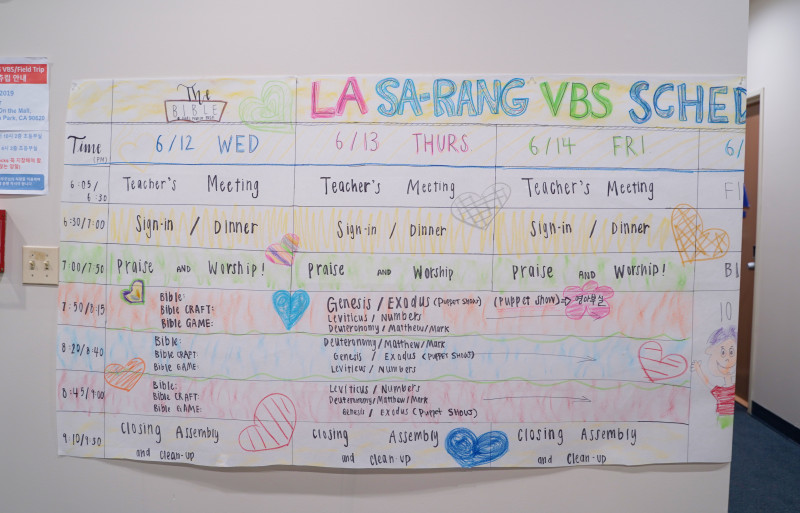 VBS/Field Trip
2019
Park, CA 90620
The
BIBLE
LA SA-RANG VBS SCHED
Time
(PM)
6/12 WED
6/13 THURS.
6/14 FRI
6/
6:05/
6:30
Teacher's Meeting
Teacher's Meeting
Teacher's Meeting
FI
6:30/7:00
Sign-in / Dinner
Sign-in / Dinner
Sign-in / Dinner
7:00/7:30
Praise AND Worship!
Praise AND Worship
Praise AND Worship!
BI
7:50/8:15
Bible:
Bible CRAFT:
Bible GAME:
Genesis / Exodus (PUPPET SHOW)
Leviticus / Numbers
Deuteronomy/Matthew/Mark
(Puppet show)⇒
10
8:20/8:40
Bible:
Bible CRAFT:
Bible GAME:
Deuteronomy/Matthew/Mark
Genesis / Exodus (PUPPET SHOW)
Leviticus / Numbers
8:45/9:00
Bible:
Bible CRAFT:
Bible GAME:
Leviticus / Numbers
Deuteronomy/Matthew/Mark
Genesis / Exodus (Puppet show)
9:10/9:30
Closing Assembly
and clean-up
Closing Assembly
and clean-up
Closing Assembly
and clean-up